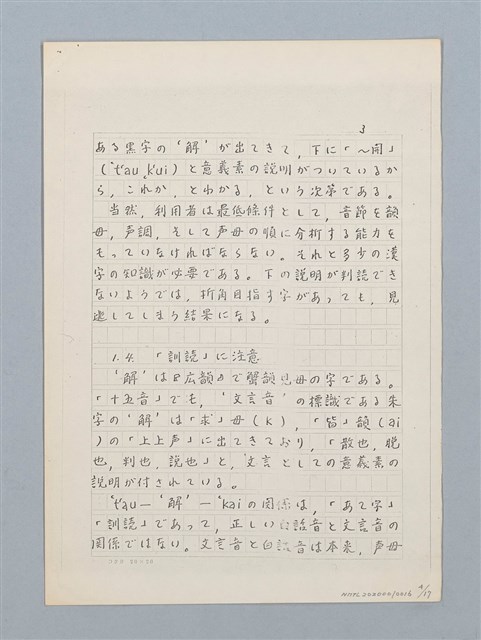 3
ある黒字の‘解’が出てきて，下に「～開」
（ʻtʻau ˏkʻui）と意義素の説明がついているか
ら，これか，とわかる，という次第である。
当然，利用者は最低條件として，音節を韻
母，声調，そして声母の順に分析する能力を
もっていなければならない。それと多少の漢
字の知識が必要である。下の説明が判読でき
ないようでは，折角目指す字があっても，見
逃してしまう結果になる。
1.4. 「訓読」に注意
‘解’は『広韻』で蟹韻見母の字である。
「十五音」でも，‘文言音’の標識である朱
字の‘解’は「求」母（k），「皆」韻（ai
）の「上上声」に出てきており，「散也，脱
也，判也，説也」と，文言としての意義素の
説明が付されている。
ʻtʻau—‘解’—ʻkaiの関係は，「あて字」
「訓読」であって，正しい白話音と文言音の
関係ではない。文言音と白話音は本来，声母
NMTL200000/0016 4/17